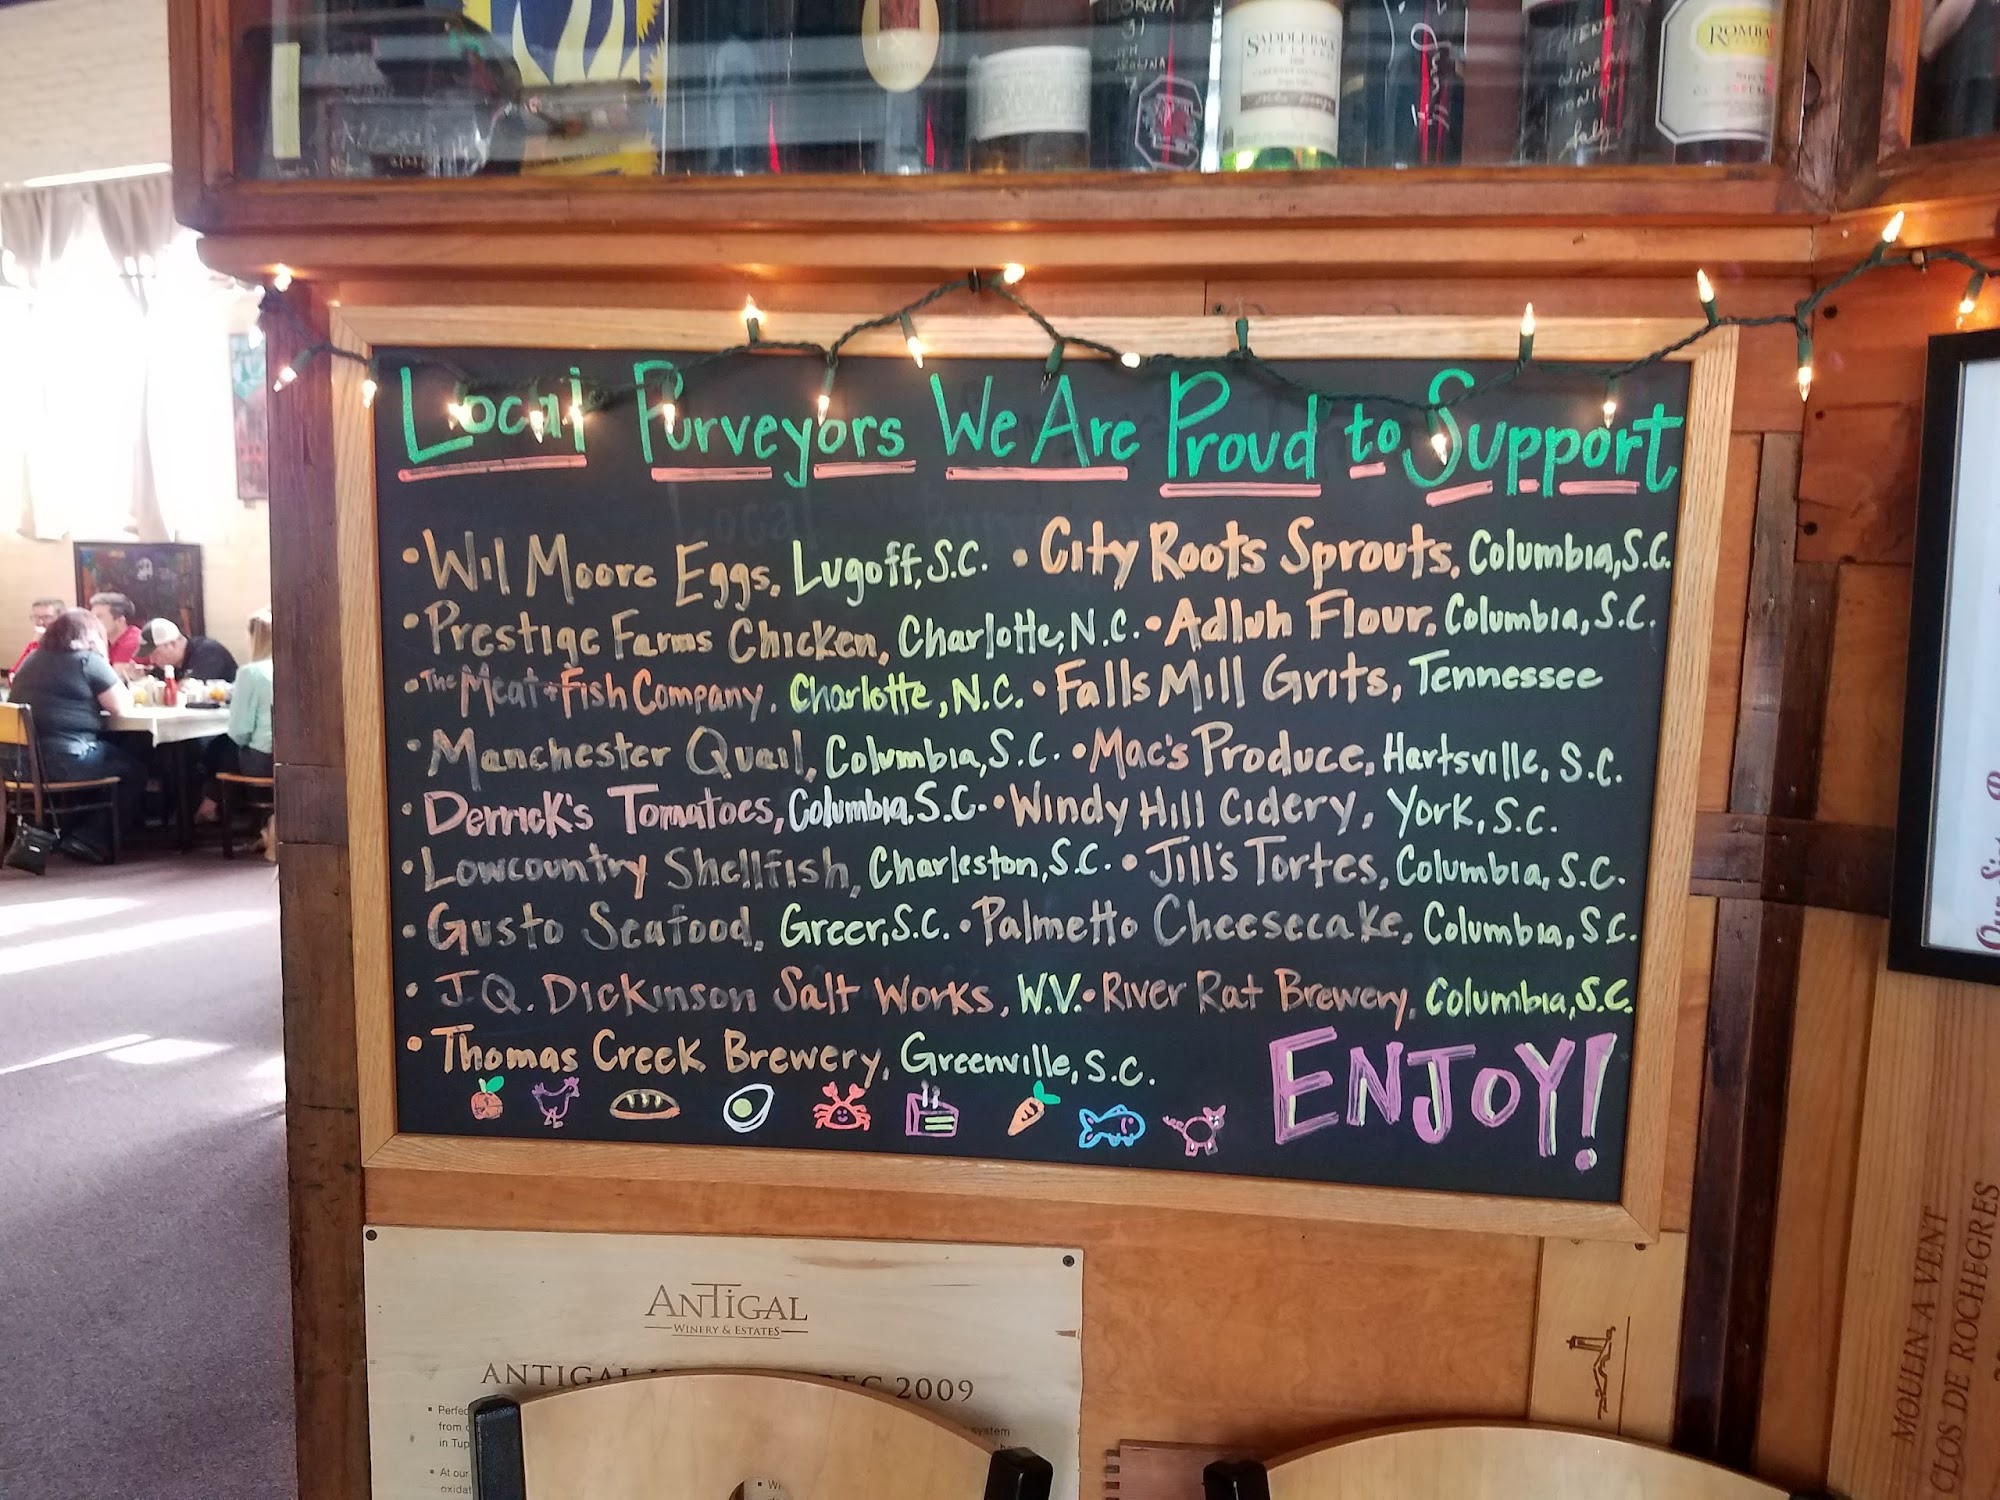 SADDLEBACK
CELLARS
ROMBA
FRIEND
TONIGHT
Local Purveyors We Are Proud to Support
• Wil Moore Eggs, Lugoff, S.C. • City Roots Sprouts, Columbia, S.C.
• Prestige Farms Chicken, Charlotte, N.C. • Adluh Flour, Columbia, S.C.
• The Meat + Fish Company, Charlotte, N.C. • Falls Mill Grits, Tennessee
• Manchester Quail, Columbia, S.C. • Mac's Produce, Hartsville, S.C.
• Derrick's Tomatoes, Columbia, S.C. • Windy Hill Cidery, York, S.C.
• Lowcountry Shellfish, Charleston, S.C. • Jill's Tortes, Columbia, S.C.
• Gusto Seafood, Greer, S.C. • Palmetto Cheesecake, Columbia, S.C.
• J.Q. Dickinson Salt Works, W.V. • River Rat Brewery, Columbia, S.C.
• Thomas Creek Brewery, Greenville, S.C.
ENJOY!
ANTIGAL
WINERY & ESTATES
ANTIGAL 2009
▪ Perfec
from
system
in Tup
▪ At our
oxidat
▪ Wi
MOULIN A VENT
CLOS DE ROCHEGRES